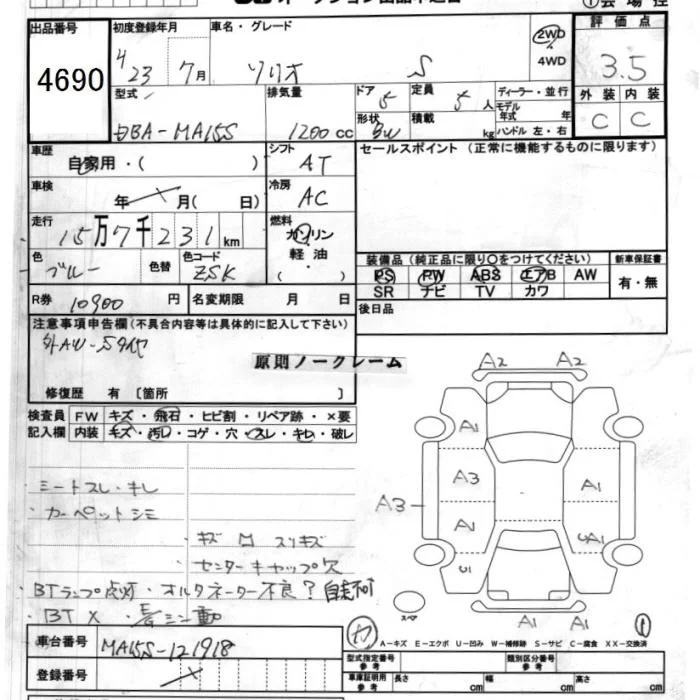 出品番号
4690
初度登録年月
H23 7月
車名・グレード
ソリオ S
2WD
4WD
評価点
3.5
型式
DBA-MA15S
排気量
1200 cc
ドア 5
定員 5 人
ディーラー・並行
形状 BW
積載 kg
モデル年式 年
ハンドル 左・右
外装 内装
C C
車歴
自家用・( )
シフト
AT
セールスポイント (正常に機能するものに限ります)
車検
年 月( 日)
冷房
AC
走行
15万7千231km
燃料
ガソリン
軽油
・( )
色
ブルー
色替
色コード
ZSK
装備品(純正品に限り○をつけてください)
新車保証書
PS PW ABS エアB AW
SR ナビ TV カワ
有・無
R券 10900 円
名変期限 月 日
後日品
注意事項申告欄(不具合内容等は具体的に記入して下さい)
原則ノークレーム
修復歴 有 [箇所 ]
検査員 FW キズ・飛石・ヒビ割・リペア跡・×要
記入欄 内装 キズ・汚レ・コゲ・穴・スレ・キレ・破レ
・シートスレ・キレ
・カーペットシミ
・キズ 凹 スリキズ
・センターキャップ欠
・BTランプ点灯・オルタネーター不良?自走不可
・BT×
A2 A2
A1
A3 A1
A3 A1
A1
A1
A1
スペア
車台番号 MA15S-121918
A-キズ E-エクボ U-凹み W-補修跡 S-サビ C-腐食 XX-交換済
登録番号
型式指定番号 参考
類別区分番号 参考
車庫証明用 参考 長さ cm 幅 cm 高さ cm